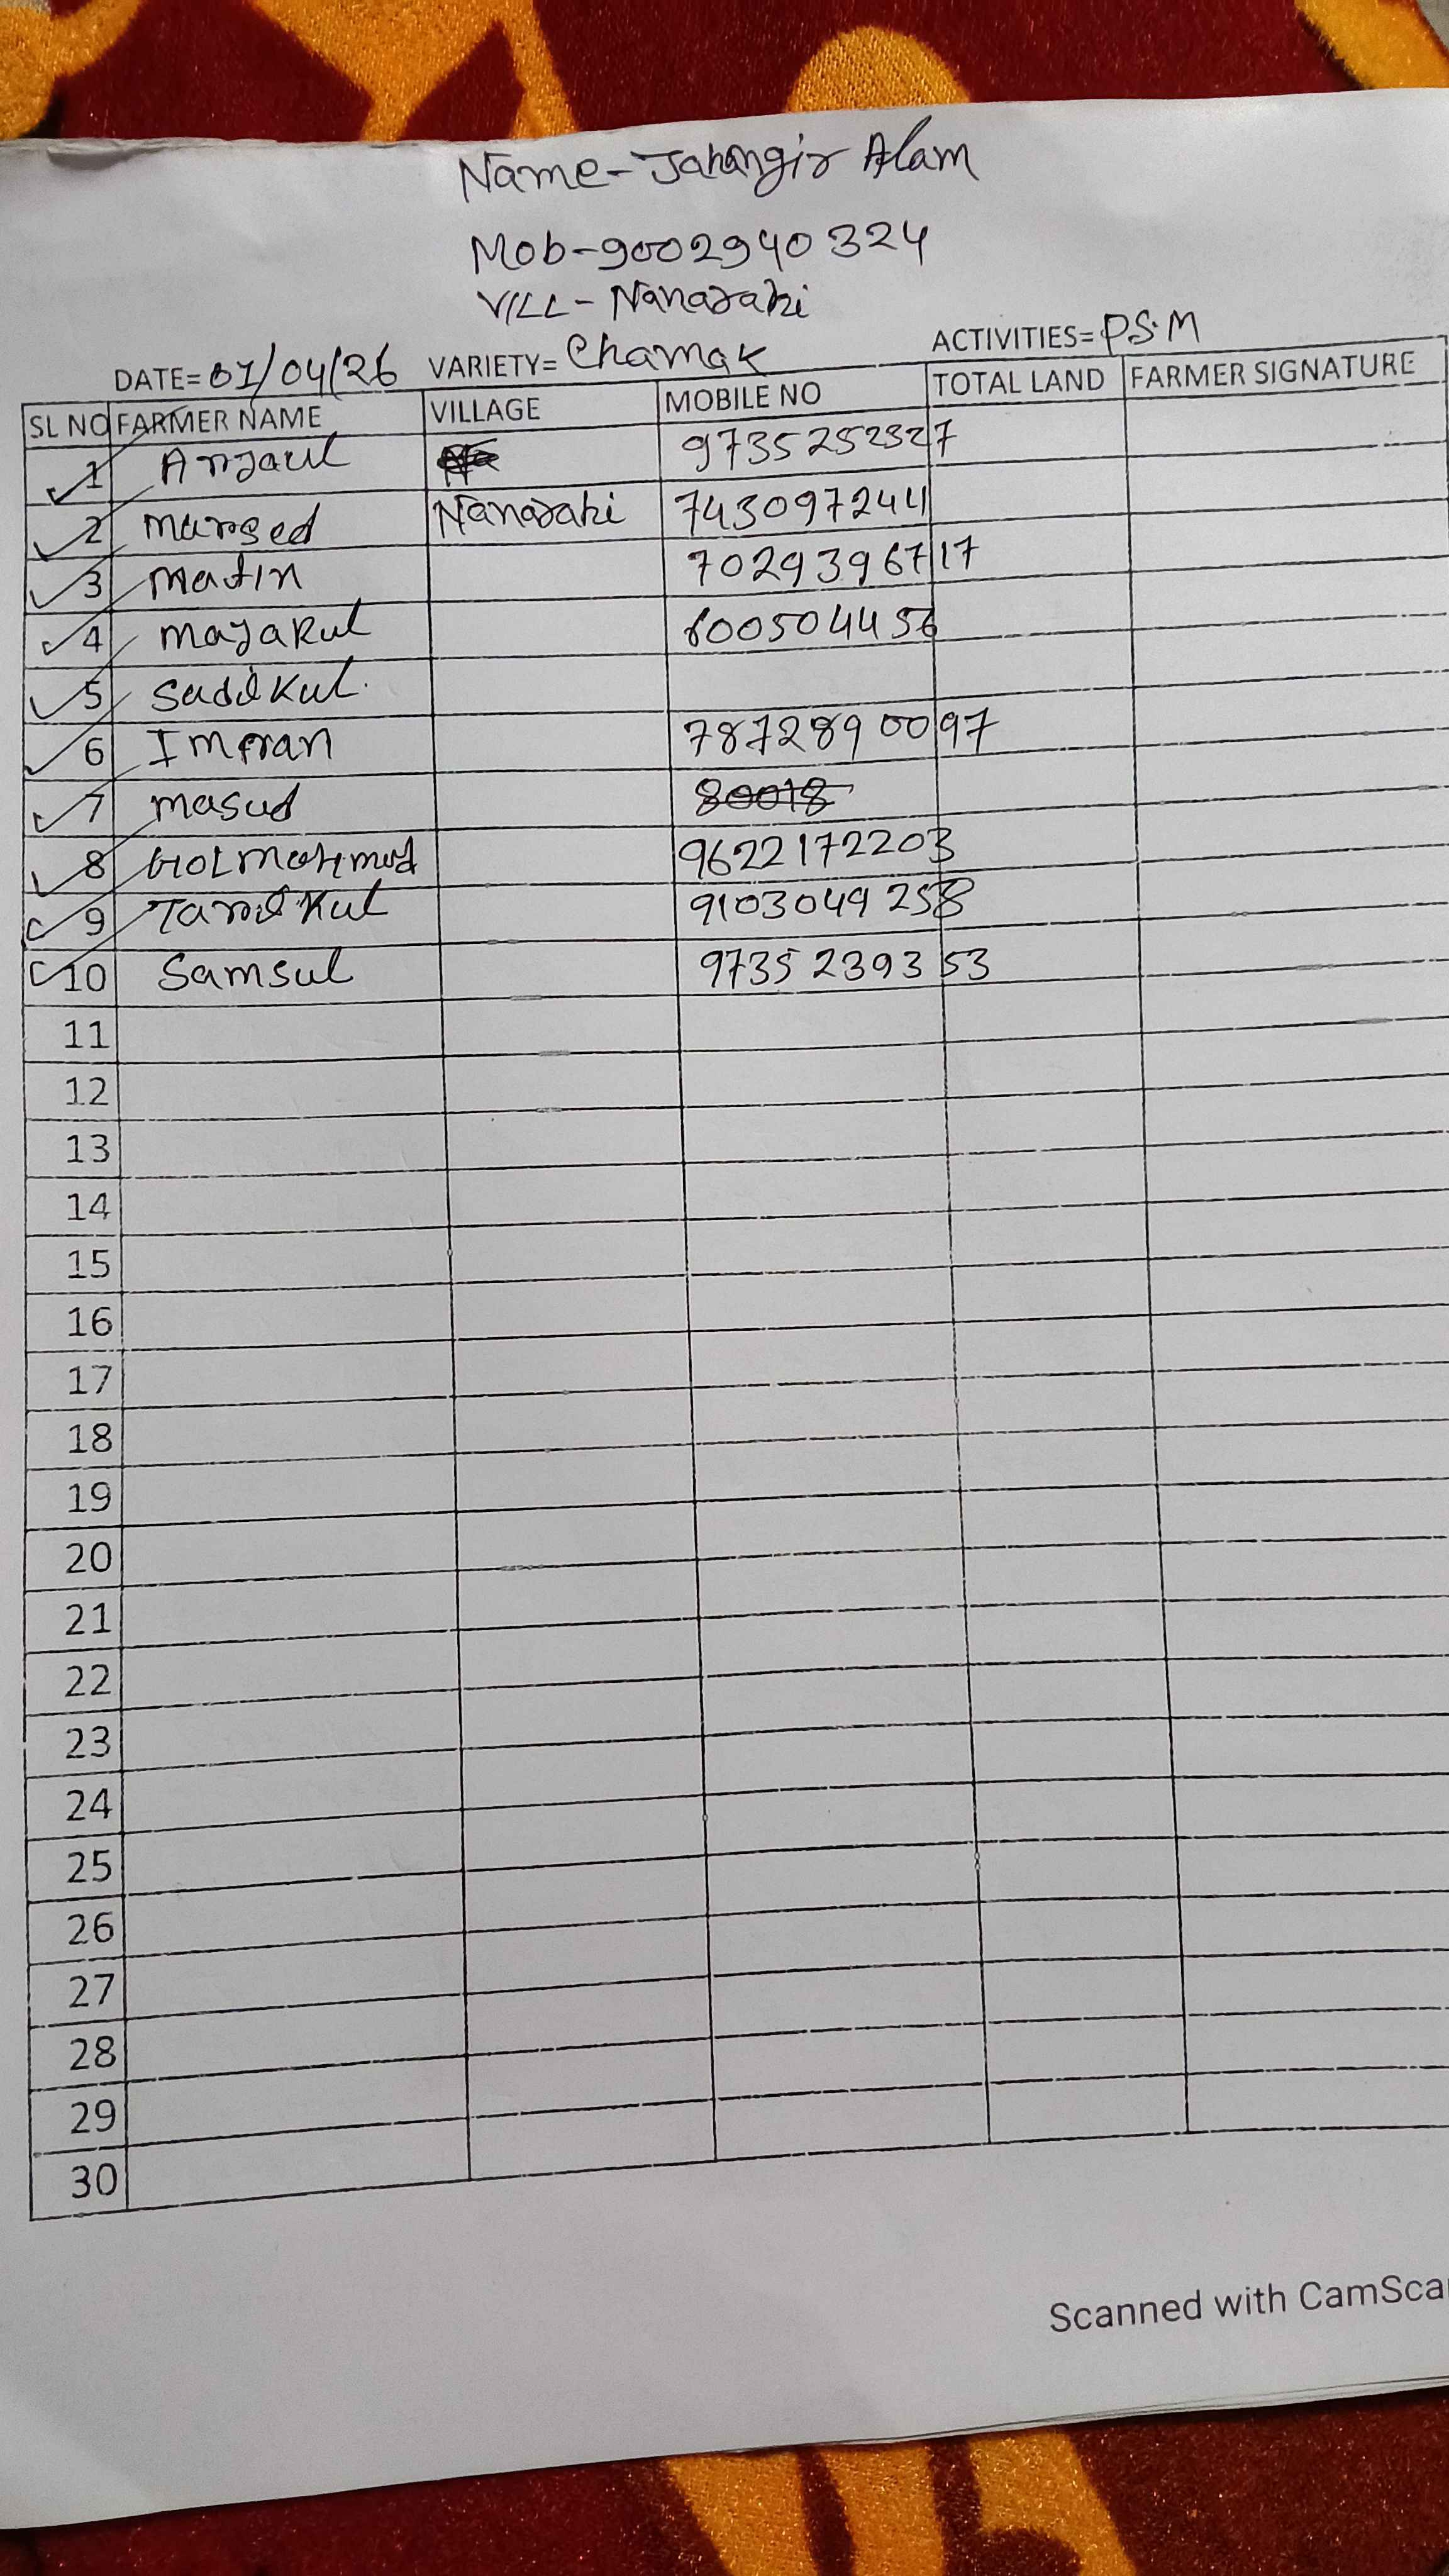 Name-Jahangir Alam
Mob-9002940324
VILL-Nanarahi
DATE=01/04/26 VARIETY=Chamak ACTIVITIES=P.S.M
SL NO FARMER NAME VILLAGE MOBILE NO TOTAL LAND FARMER SIGNATURE
1 Anjaul 9735252327
2 mursed Nanarahi 7430972411
3 matin 7029396717
4 majarul 600504456
5 Sadikul.
6 Imran 7872890097
7 masud 80018
8 Golmahmud 9622172203
9 Tarikul 9103049258
10 Samsul 9735239353
11
12
13
14
15
16
17
18
19
20
21
22
23
24
25
26
27
28
29
30
Scanned with CamSca